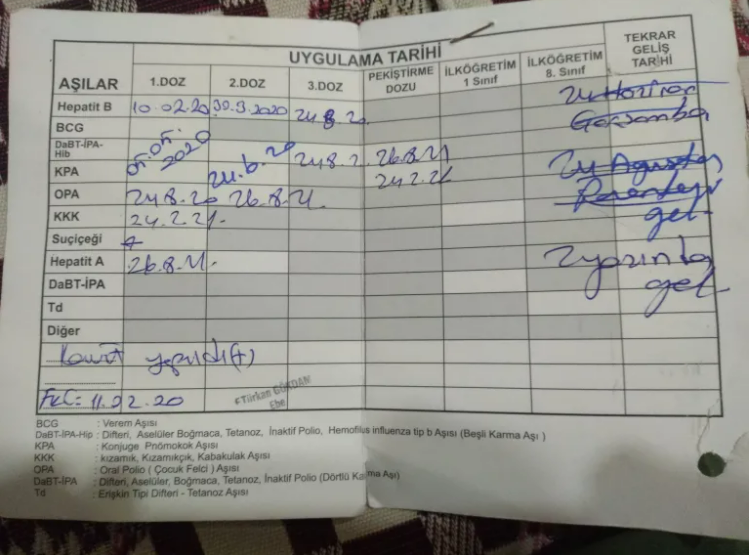 UYGULAMA TARİHİ
TEKRAR GELİŞ TARİHİ
AŞILAR 1.DOZ 2.DOZ 3.DOZ PEKİŞTİRME DOZU İLKÖĞRETİM 1 Sınıf İLKÖĞRETİM 8. Sınıf
Hepatit B 10.02.20 30.3.2020 24.8.20. 24 Haziran
BCG Perşembe
DaBT-İPA-Hib 05.05.2020 24.6.20 24.8.2. 26.8.21
KPA 24.2.21
OPA 24.8.20 26.8.21. gel
KKK 24.2.21.
Suçiçeği
Hepatit A 26.8.21. 2 yaşında
DaBT-İPA gel
Td
Diğer
yapıldı (+)
FKC: 11.02.20
Türkan
Ebe
BCG : Verem Aşısı
DaBT-İPA-Hip : Difteri, Aselüler Boğmaca, Tetanoz, İnaktif Polio, Hemofilus influenza tip b Aşısı (Beşli Karma Aşı )
KPA : Konjuge Pnömokok Aşısı
KKK : kızamık, Kızamıkçık, Kabakulak Aşısı
OPA : Oral Polio ( Çocuk Felci ) Aşısı
DaBT-İPA : Difteri, Aselüler Boğmaca, Tetanoz, İnaktif Polio (Dörtlü Karma Aşı)
Td : Erişkin Tipi Difteri - Tetanoz Aşısı